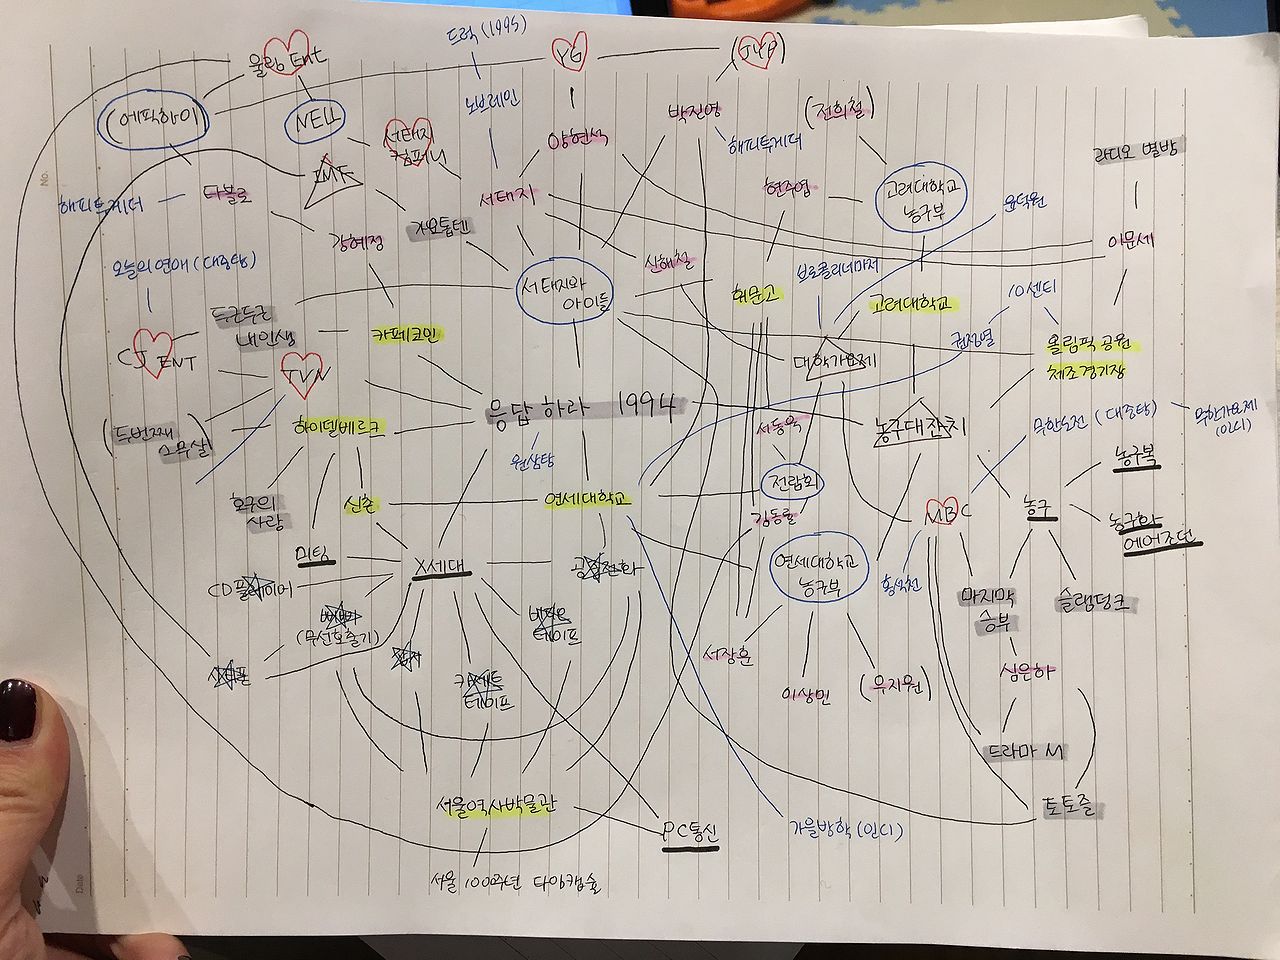 드럭 (1995)
울림 Ent
YG
(JYP)
(에픽하이)
NELL
노브레인
박진영
(전희철)
서태지
컴퍼니
양현석
해피투게더
라디오 별밤
IMF
현주엽
고려대학교
농구부
해피투게더
타블로
서태지
윤덕원
가요톱텐
강혜정
이문세
신해철
오늘의 연애 (대중탕)
브로콜리너마저
서태지와
아이들
휘문고
고려대학교
10센티
두근두근
내인생
카페코인
권정열
올림픽 공원
체조경기장
CJ ENT
대학가요제
TVN
응답하라 1994
(두번째
스무살)
하이델베르크
서동욱
농구대잔치
무한도전 (대중탕)
무한가요제
(인디)
원삼탕
농구복
전람회
호구의
사랑
신촌
연세대학교
김동률
MBC
농구
농구화
에어조던
미팅
X세대
공중전화
연세대학교
농구부
CD플레이어
황석천
마지막
승부
슬램덩크
(무선호출기)
테이프
서장훈
이상민
(우지원)
심은하
카세트
테이프
드라마 M
서울역사박물관
토토즐
PC통신
가을방학 (인디)
서울 100주년 타임캡슐
No.
Date